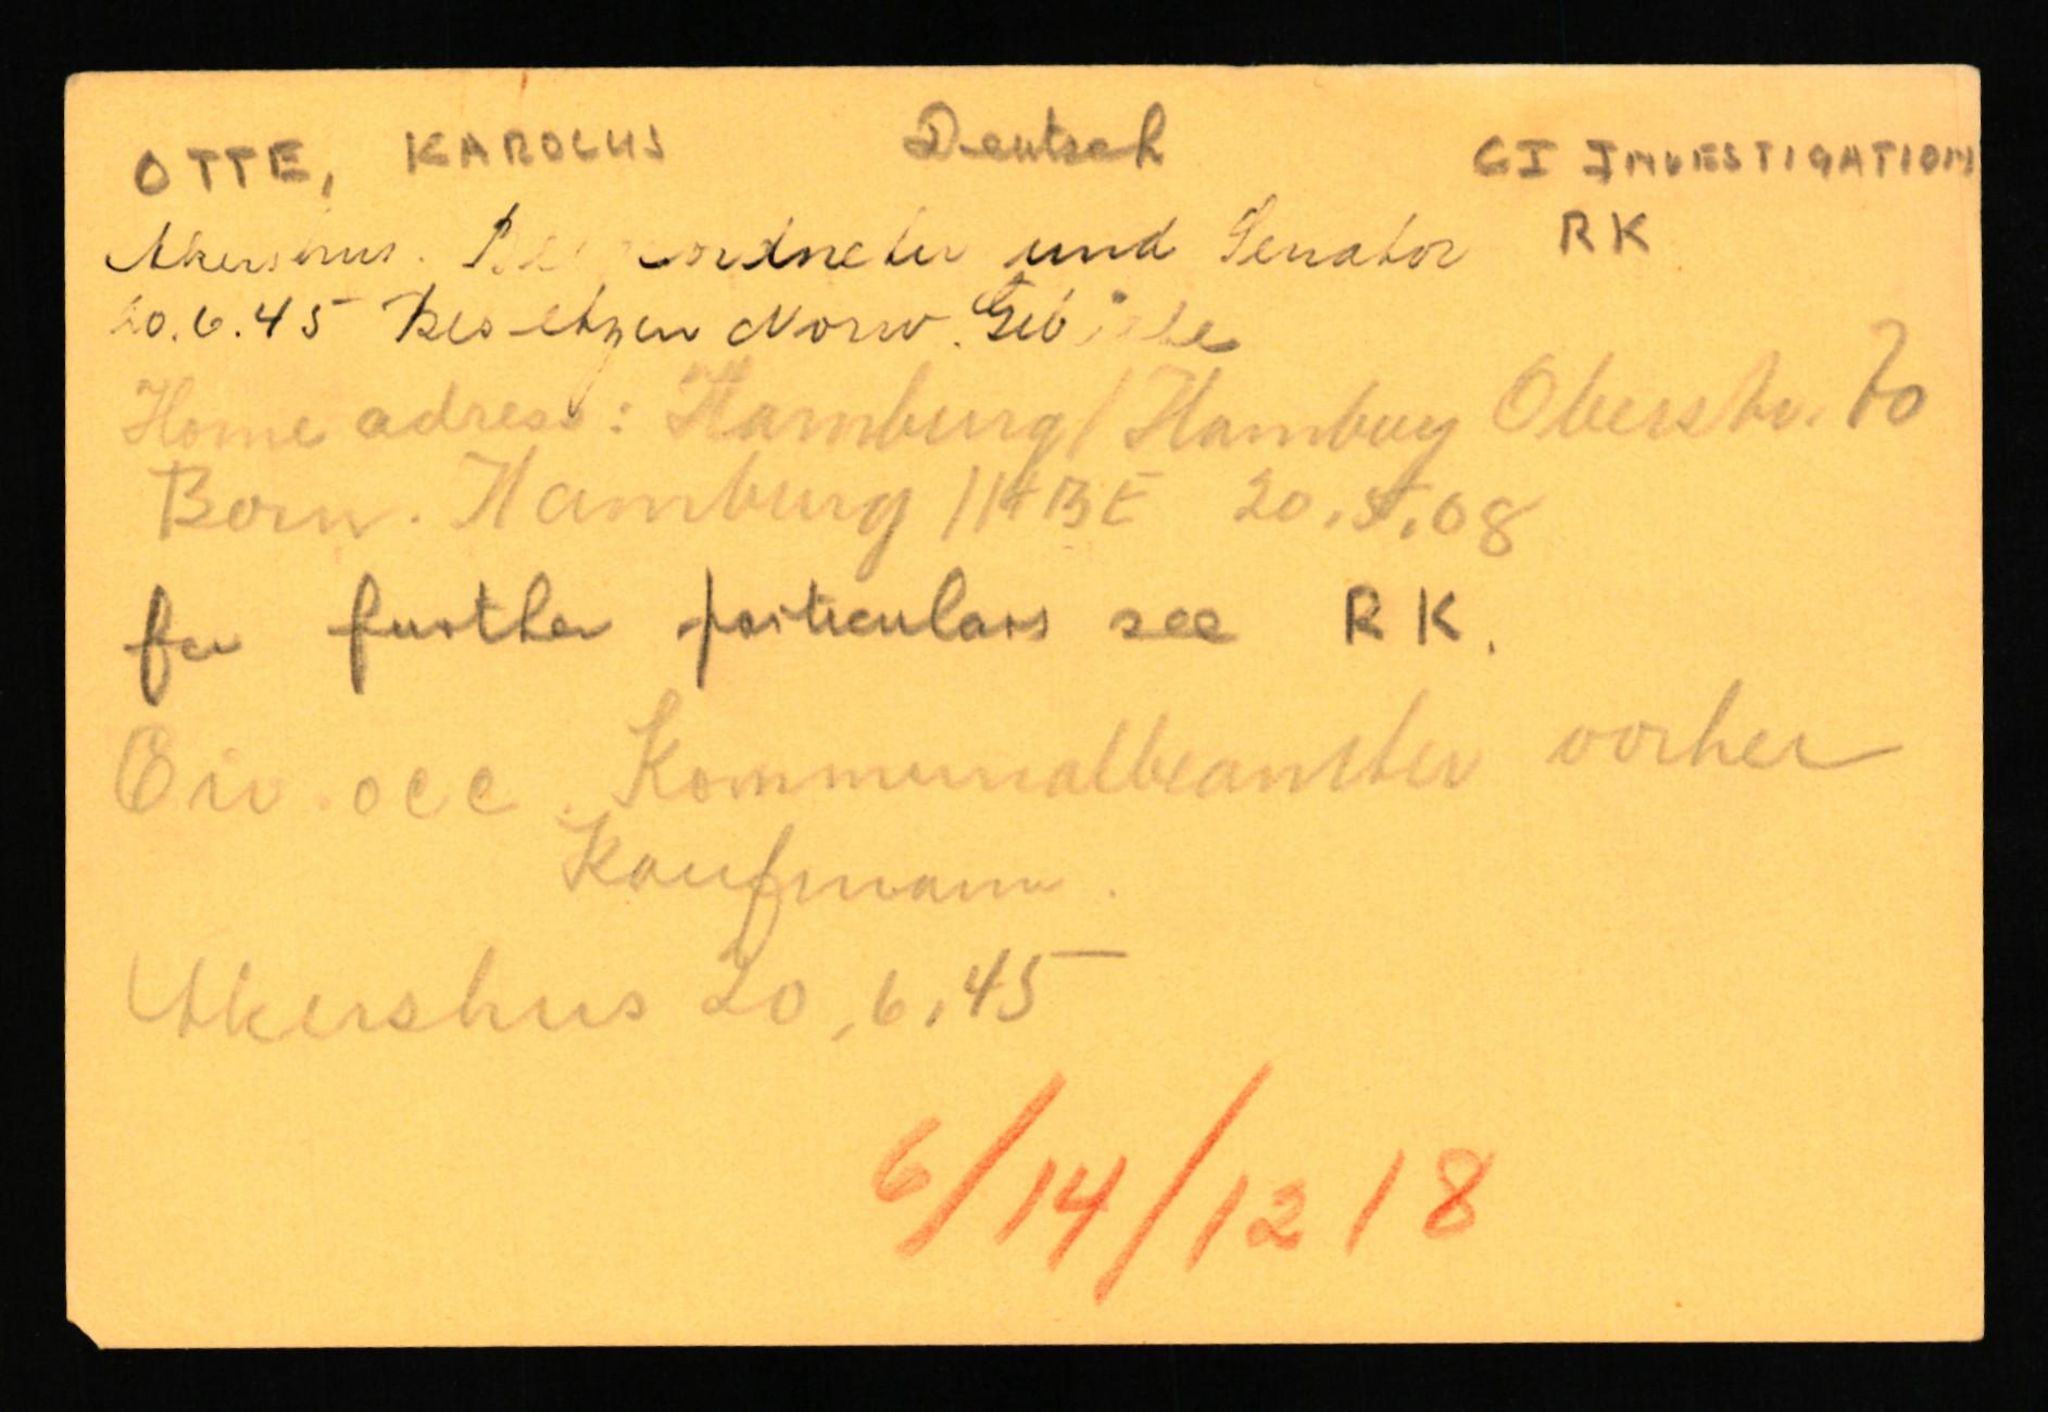 OTTE, KAROLUS Deutsch CI INVESTIGATION
Akershus. und Senator RK
20.6.45 Besetzen Norw. Gebiete
Home adress: Hamburg/Hamburg Oberstr. 20
Born. Hamburg/HBE 20.5.08
for further particulars see RK.
Civ. occ. Kommunalbeamter vorher
Kaufmann.
Akershus 20,6,45
6/14/12 18